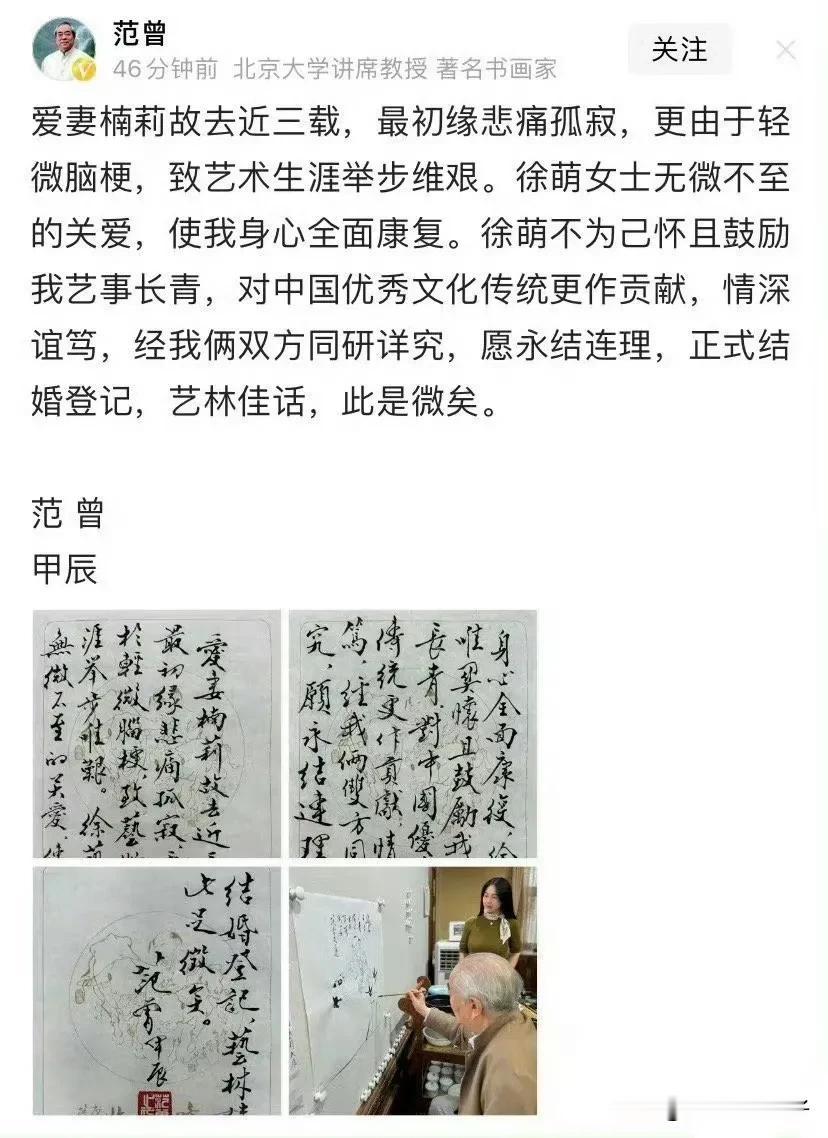 范曾
46分钟前 北京大学讲席教授 著名书画家
关注
爱妻楠莉故去近三载，最初缘悲痛孤寂，更由于轻
微脑梗，致艺术生涯举步维艰。徐萌女士无微不至
的关爱，使我身心全面康复。徐萌不为己怀且鼓励
我艺事长青，对中国优秀文化传统更作贡献，情深
谊笃，经我俩双方同研详究，愿永结连理，正式结
婚登记，艺林佳话，此是微矣。
范 曾
甲辰
愛妻楠莉故去近
最初缘悲痛孤寂，
於輕微腦梗，致藝
涯举步唯艱。徐萌
無微不至的关愛，
身心全面康復，徐
唯懷且鼓励我
長青，對中國優
傳統更作貢獻，情
篤，经我俩雙方同
究，願永结連理
结婚登记，藝林
此足徵矣。
范曾甲辰